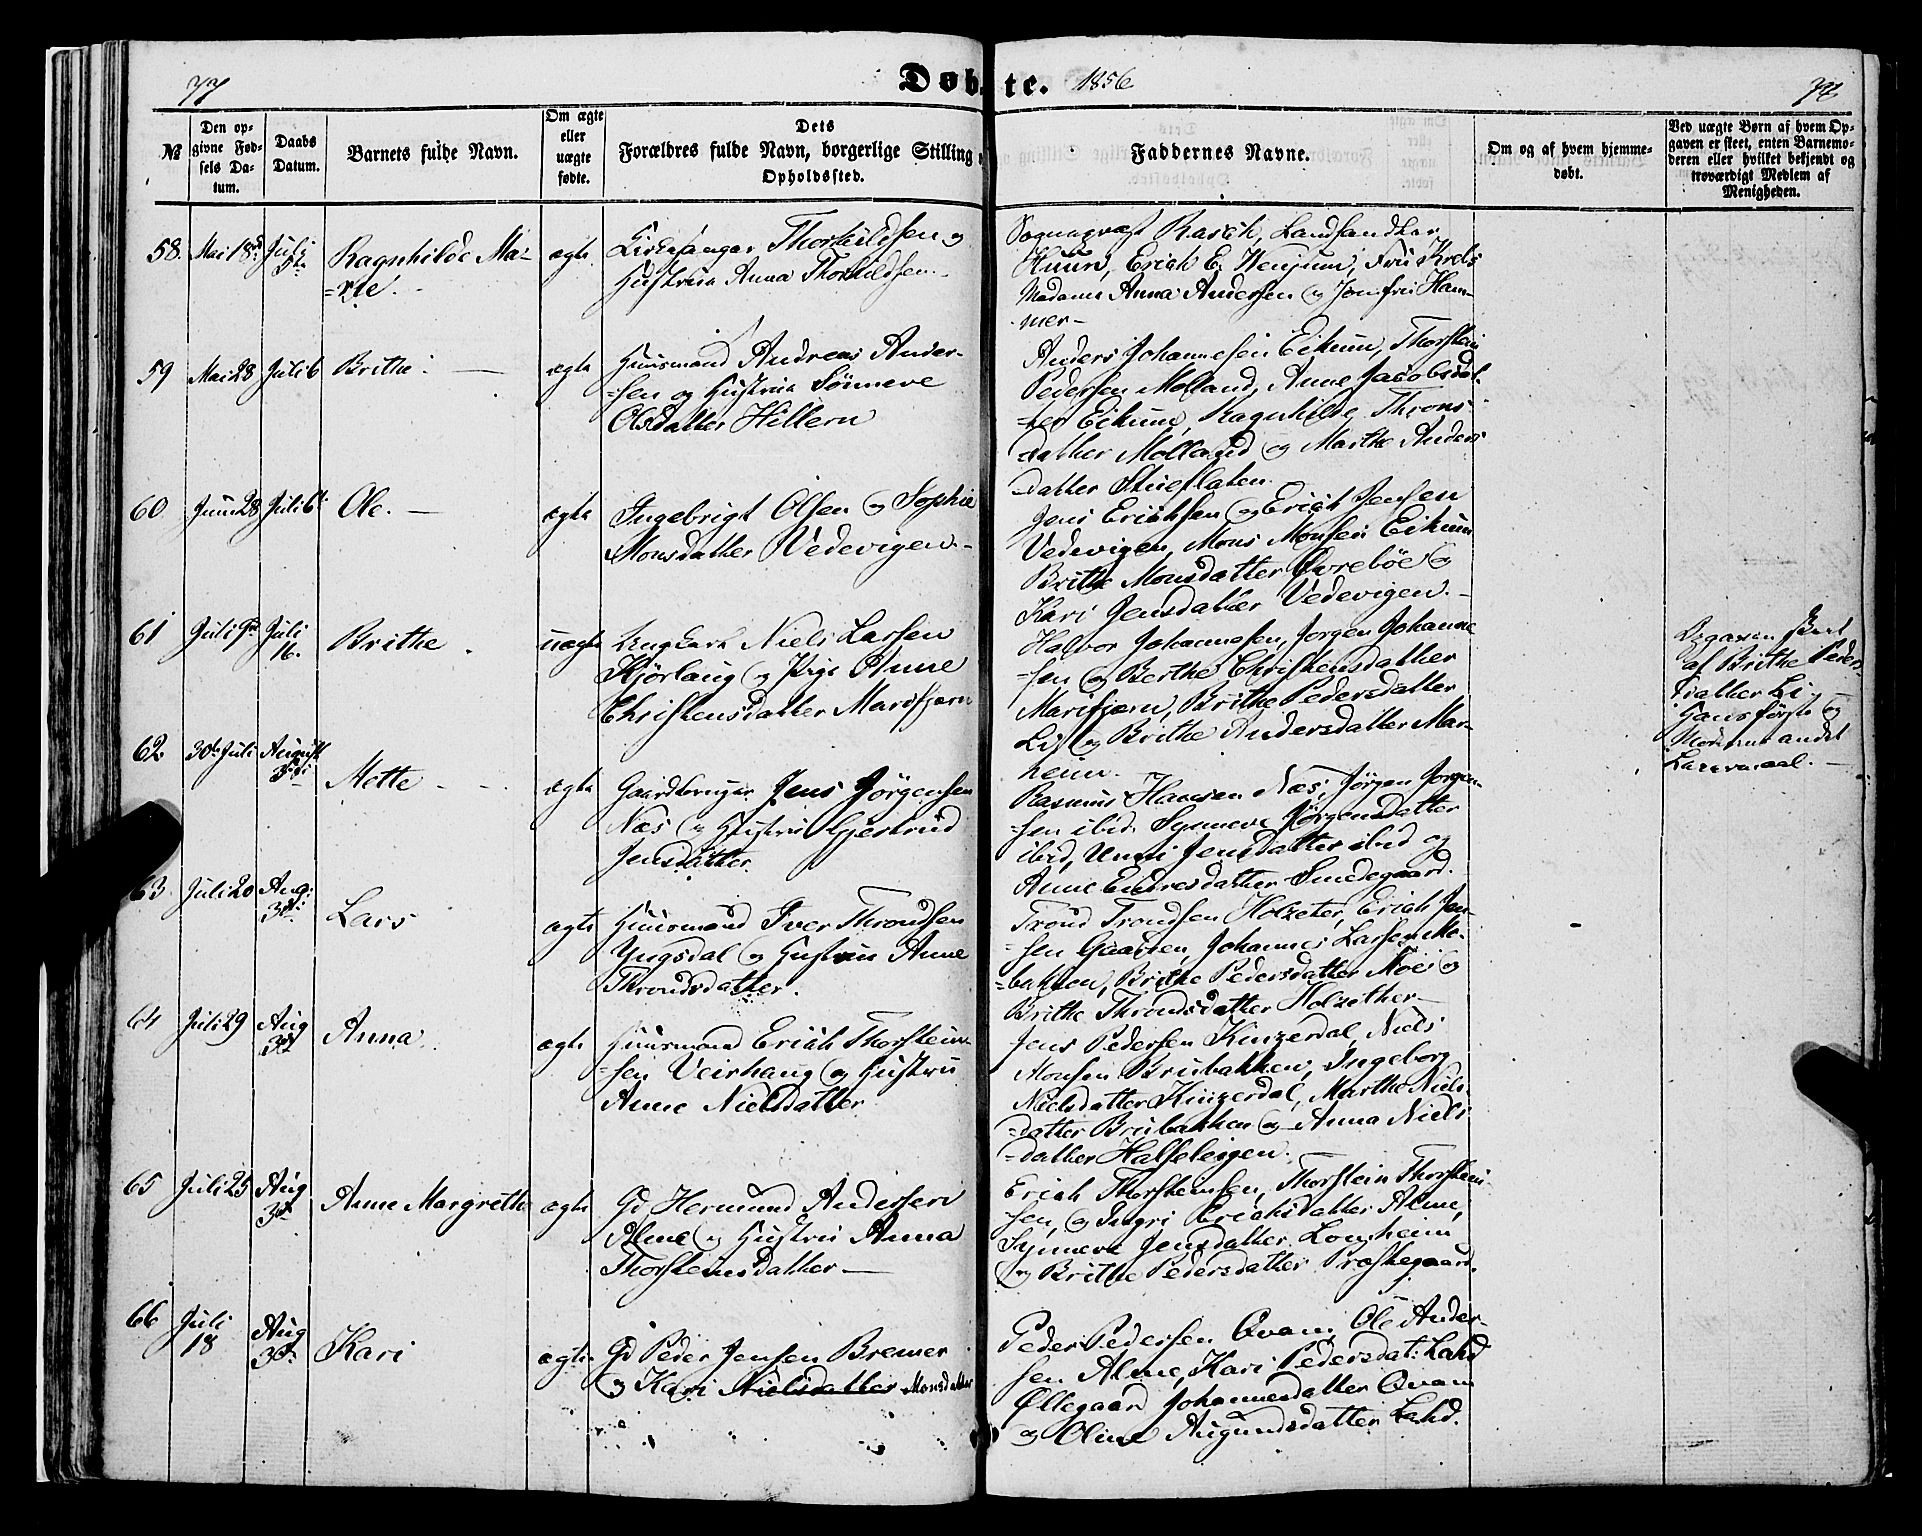 77
Døbte. 1856
78
№
Den opgivne Fødsels Datum.
Daabs Datum.
Barnets fulde Navn.
Om ægte eller uægte fødte.
Dets Forældres fulde Navn, borgerlige Stilling
Opholdssted.
Faddernes Navne.
Om og af hvem hjemmedøbt.
Ved uægte Børn af hvem Opgaven er skeet, enten Barnemoderen eller hvilket bekjendt og troværdigt Medlem af Menigheden.
58. Mai 18 Juli Ragnhilde Ma-
=rie.
ægte Kirkesanger Thorkildsen og
Hustrue Anna Thorkildsen.
Rasch, Landhandler
Huun, Erich E. Venjum, Fru Krebs
Madame Anna Andersen og Jomfru Ham-
mer
59 Mai 28 Juli 6 Brithe
ægte Huusmand Andreas Ander-
=sen og Hustrue Sönneve
Olsdatter Hillern
Anders Johannesen Eikum, Thorstein
Pedersen Molland, Anne Jacobsdat-
=ter Eikum, Ragnhilde Throns-
datter Molland og Marthe Anders
datter
60 Juni 28 Juli 6 Ole.
ægte Ingebrigt Olsen og Sophie
Monsdatter Vedevigen
Jens Erichsen og Erich Jensen
Vedevigen, Mons Monsen Eikum
Brithe Monsdatter Øvrebøe og
Kari Jensdatter Vedevigen.
61 Juli Juli 16. Brithe.
uægte Ungkarl Niels Larsen
Kjørlaug og Pige Anne
Christensdatter Marifjæren
Halvor Johannesen, Jørgen Johanne
=sen og Berthe Christensdatter
Marifjæren, Brithe Pedersdatter
Li og Brithe Andersdatter Mar-
heim.
Opgaven skeet
af Brithe Peders-
datter Li
Hans første og
Moderens andet
Leiermaal.
62. 30te Juli August Mette
ægte Gaardbruger Jens Jörgensen
Næs og Hustru Gjertrud
Jensdatter.
Rasmus Hansen Næs, Jørgen Jørgen-
=sen ibid. Synneve Jørgensdatter
ibid, Unni Jensdatter ibid og
Anne Endresdatter Smedegaard.
63 Juli 20 Aug: Lars
ægte Huusmand Iver Throndsen
Yngsdal og Hustru Anne
Throndsdatter.
Trond Trondsen Holzeter, Erich Jen-
=sen Gaarden, Johannes Larsen Mo-
=bakken, Brithe Pedersdatter Moei og
Brithe Thronsdatter Holzether
64 Juli 29 Aug Anna
ægte Huusmand Erich Thorstein-
=sen Veirhaug og Hustru
Anne Nielsdatter
Jens Pedersen Kinzerdal, Niels
Monsen Brubakken, Ingeborg
Nielsdatter Kinzerdal, Marthe Niels-
=datter Brubakken og Anna Niels
=datter
65 Juli 25 Aug Anne Margrethe
ægte Gd Hermund Andersen
Alme og Hustru Anna
Thorsteinsdatter
Erich Thorsteinsen, Thorstein Thorstein
=sen, og Ingri Erichsdatter Alme,
Synneve Jensdatter Lomheim
og Brithe Pedersdatter Præstegaard.
66 Juli 18 Aug Kari
ægte Gd Peder Jensen Bremer
og Kari Nielsdatter Monsdatter
Peder Pedersen Qvam, Ole Ander-
sen Alme, Kari Pedersdat: Lahd
Øllegaard Johannesdatter Qvam
og Oline Augundsdatter Lahd.